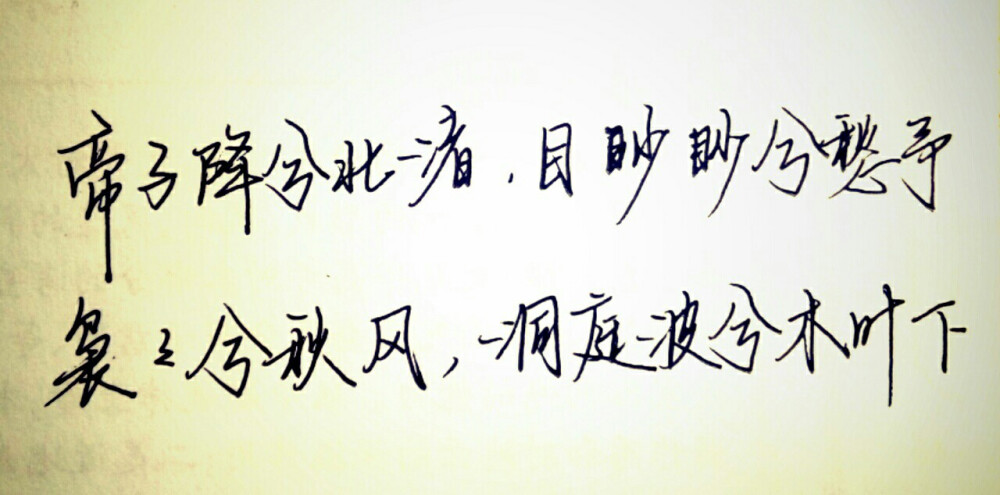 帝子降兮北渚，目眇眇兮愁予
袅〻兮秋风，洞庭波兮木叶下